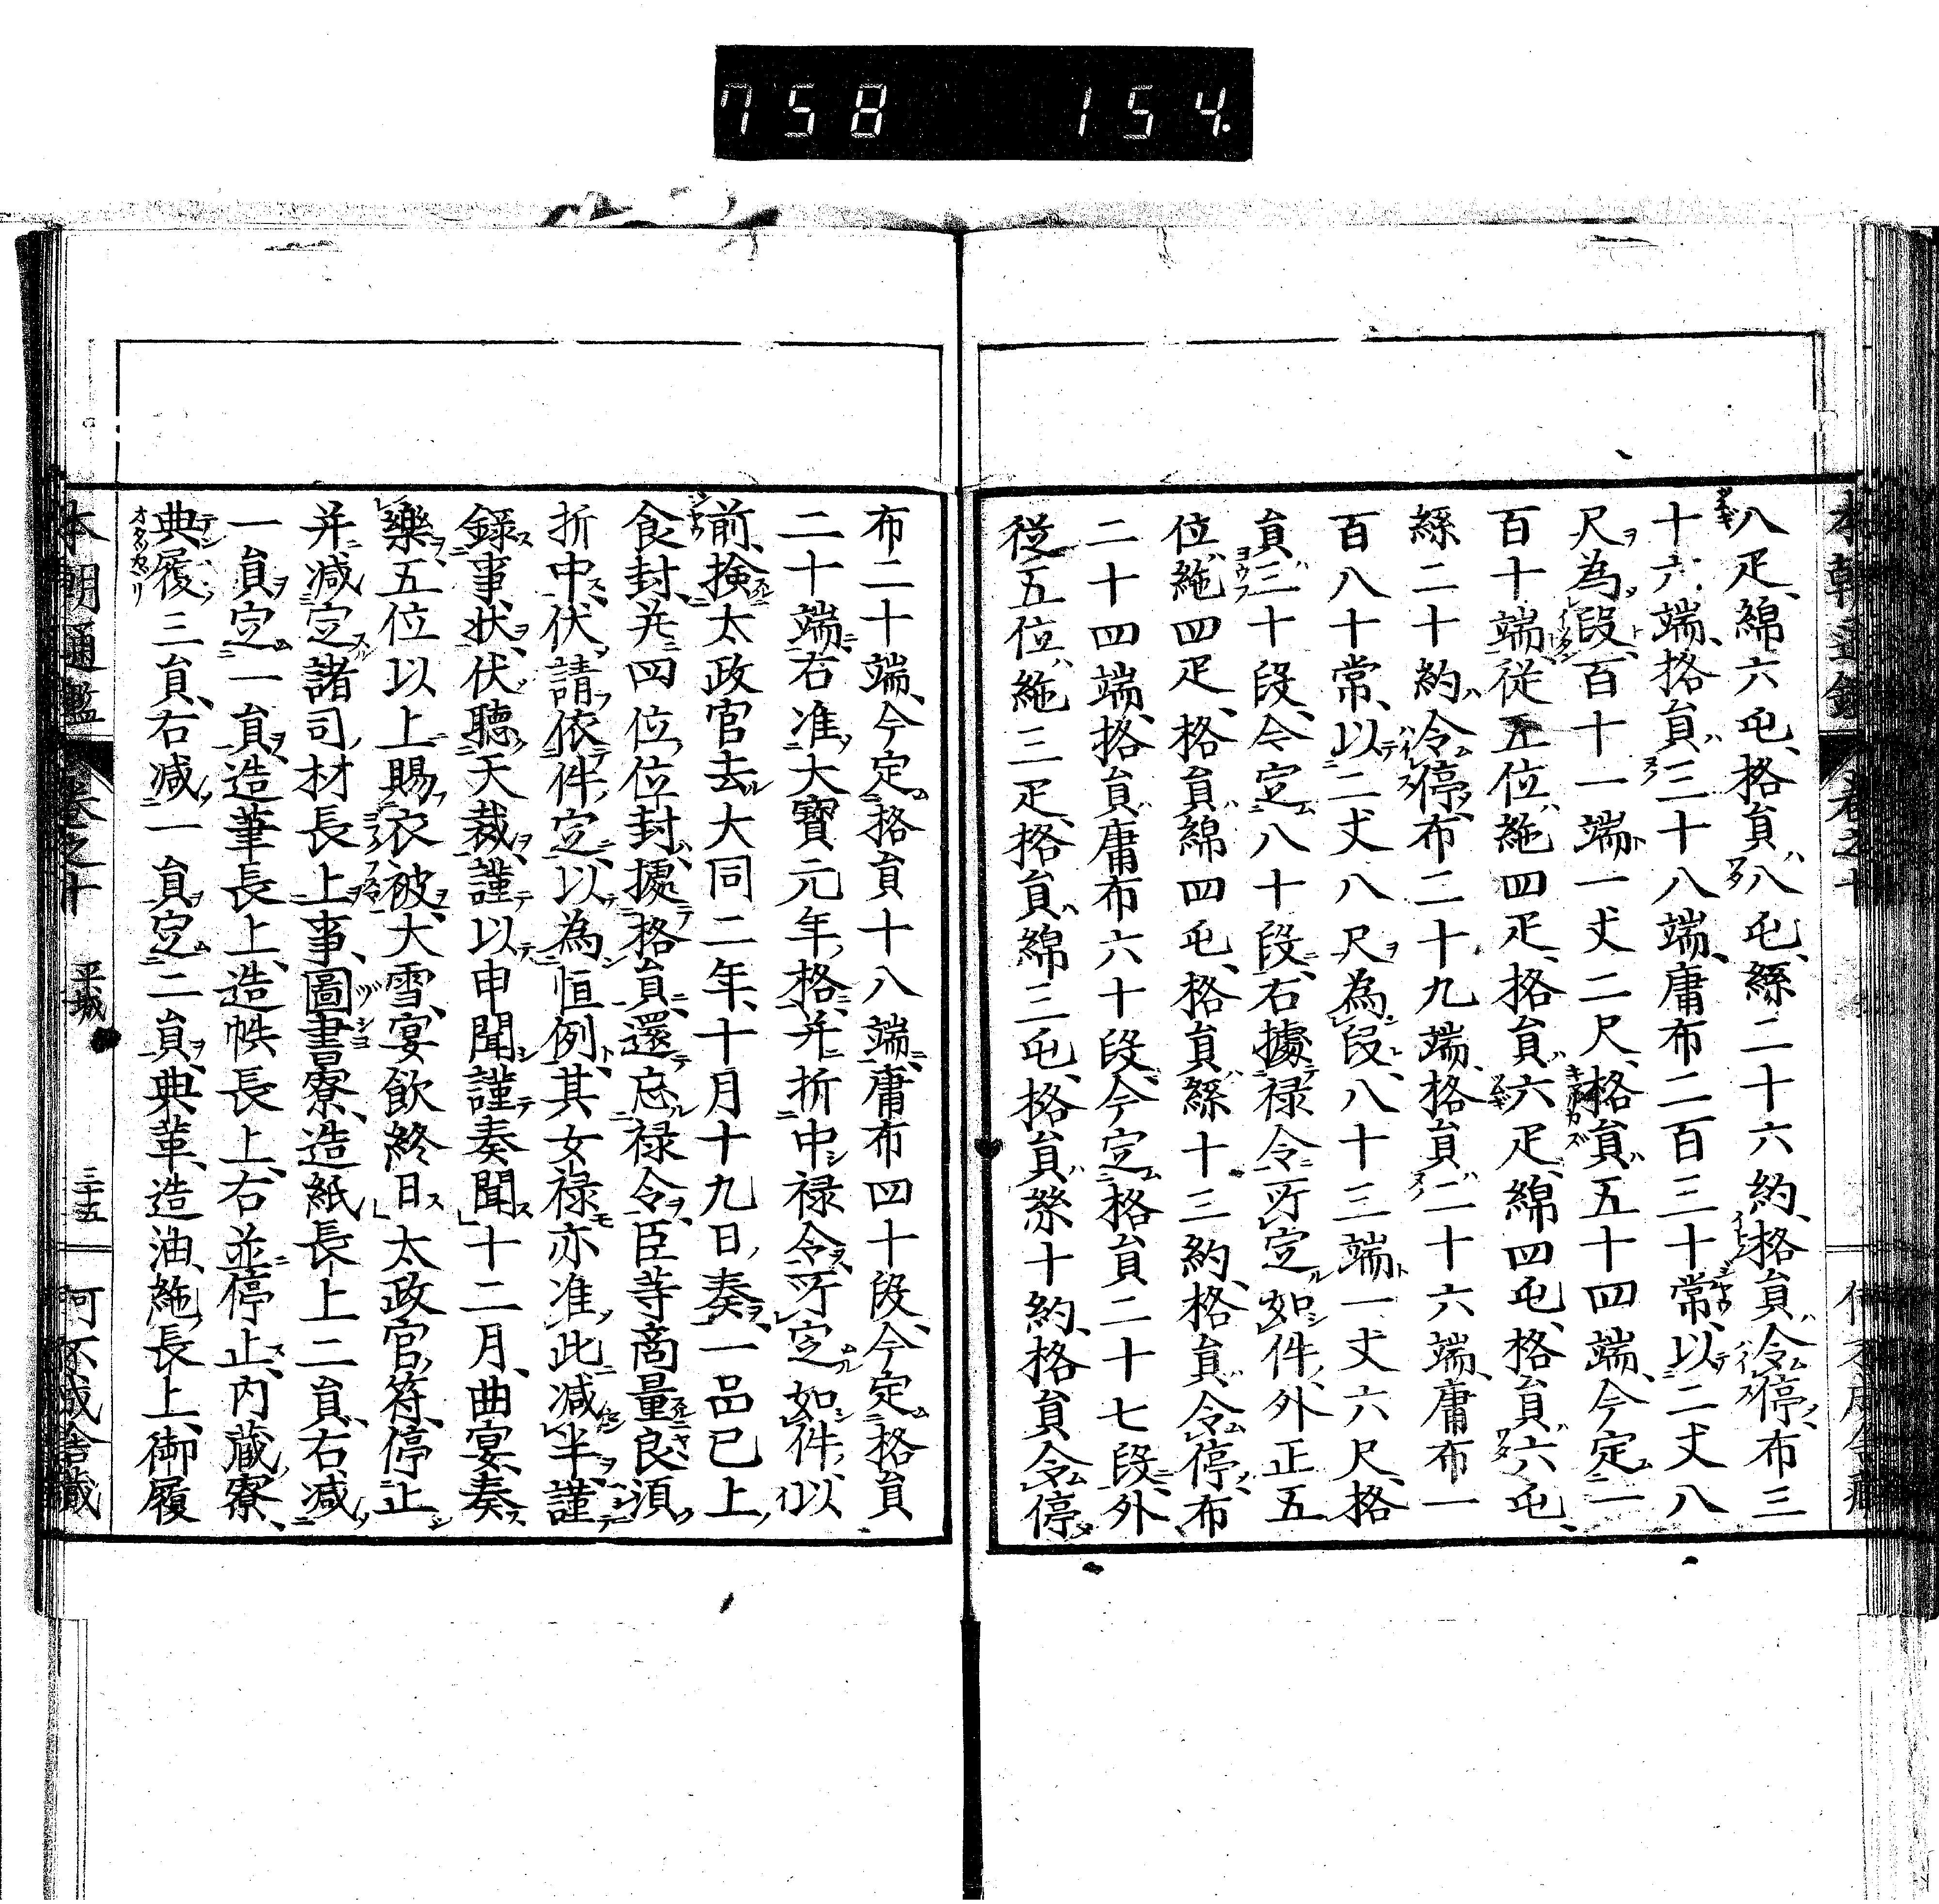 758 154.
八疋、綿六屯、格員八屯、絲二十六約、格員令停、布三
十六端、格員三十八端、庸布二百三十常、以二丈八
尺為段、百十一端一丈二尺、格員五十四端、今定一
百十端、従五位絁四疋、格員六疋、綿四屯、格員六屯、
絲二十約、令停、布二十九端、格員二十六端、庸布一
百八十常、以二丈八尺為段、八十三端一丈六尺、格
員三十段、令定八十段、右據禄令所定如件、外正五
位、絁四疋、格員綿四屯、格員絲十三約、格員令停、布
二十四端、格員庸布六十段、今定格員二十七段、外
従五位絁三疋、格員綿三屯、格員絲十約、格員令停、
布二十端、今定格員十八端、庸布四十段、今定格員
二十端、右准大寶元年格、并折中禄令所定如件、以
前、検太政官去大同二年、十月十九日、奏、一品已上
食封、并四位位封、據格員還忘禄令、臣等商量良須
折中、伏請依件定、以為恒例、其女禄亦准此減半、謹
録事状、伏聴天裁、謹以申聞謹奏聞十二月、曲宴、奏
樂、五位以上賜衣被、大雪、宴飲終日太政官符、停止
并减定諸司材長上事、圖書寮、造紙長上二員、右减
一員定一員、造筆長上、造帙長上、右並停止、内蔵寮、
典履三員、右减一員定二員、典革、造油絁長上、御履
本朝通鑑 巻之十 平城 三十五